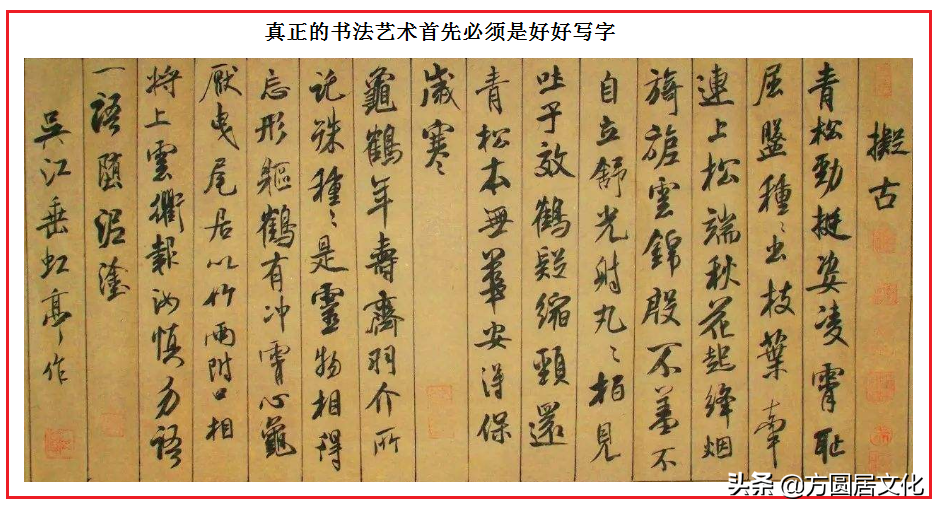 真正的书法艺术首先必须是好好写字
擬古
青松勁挺姿凌霄恥
屈盤種〻出枝葉牽
連上松端秋花起絳烟
旖旎雲錦殷不羞不
自立舒光射丸〻柏見
吐子效鶴疑縮頸還
青松本無華安得保
歲寒〻
龜鶴年壽齊羽介所
託殊種〻是靈物相得
忘形軀鶴有冲霄心龜
厭曳尾居以竹兩附口相
将上雲衢報汝慎勿語
一語墮泥塗
吳江垂虹亭作
头条 @方圆居文化